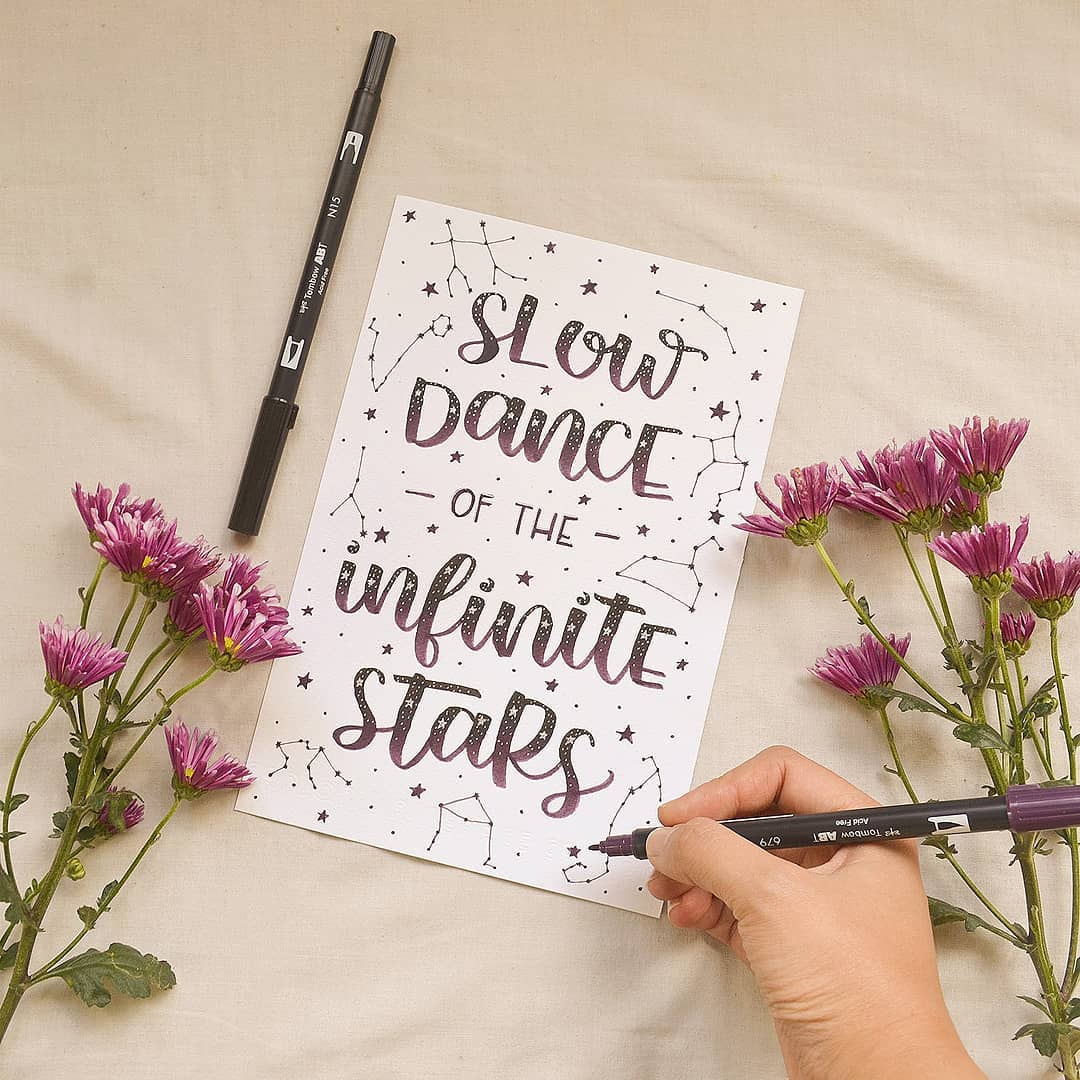 SLOW
DANCE
- OF THE -
infinite
STARS
N15
Tombow ABT
Acid Free
679
Tombow ABT
Acid Free